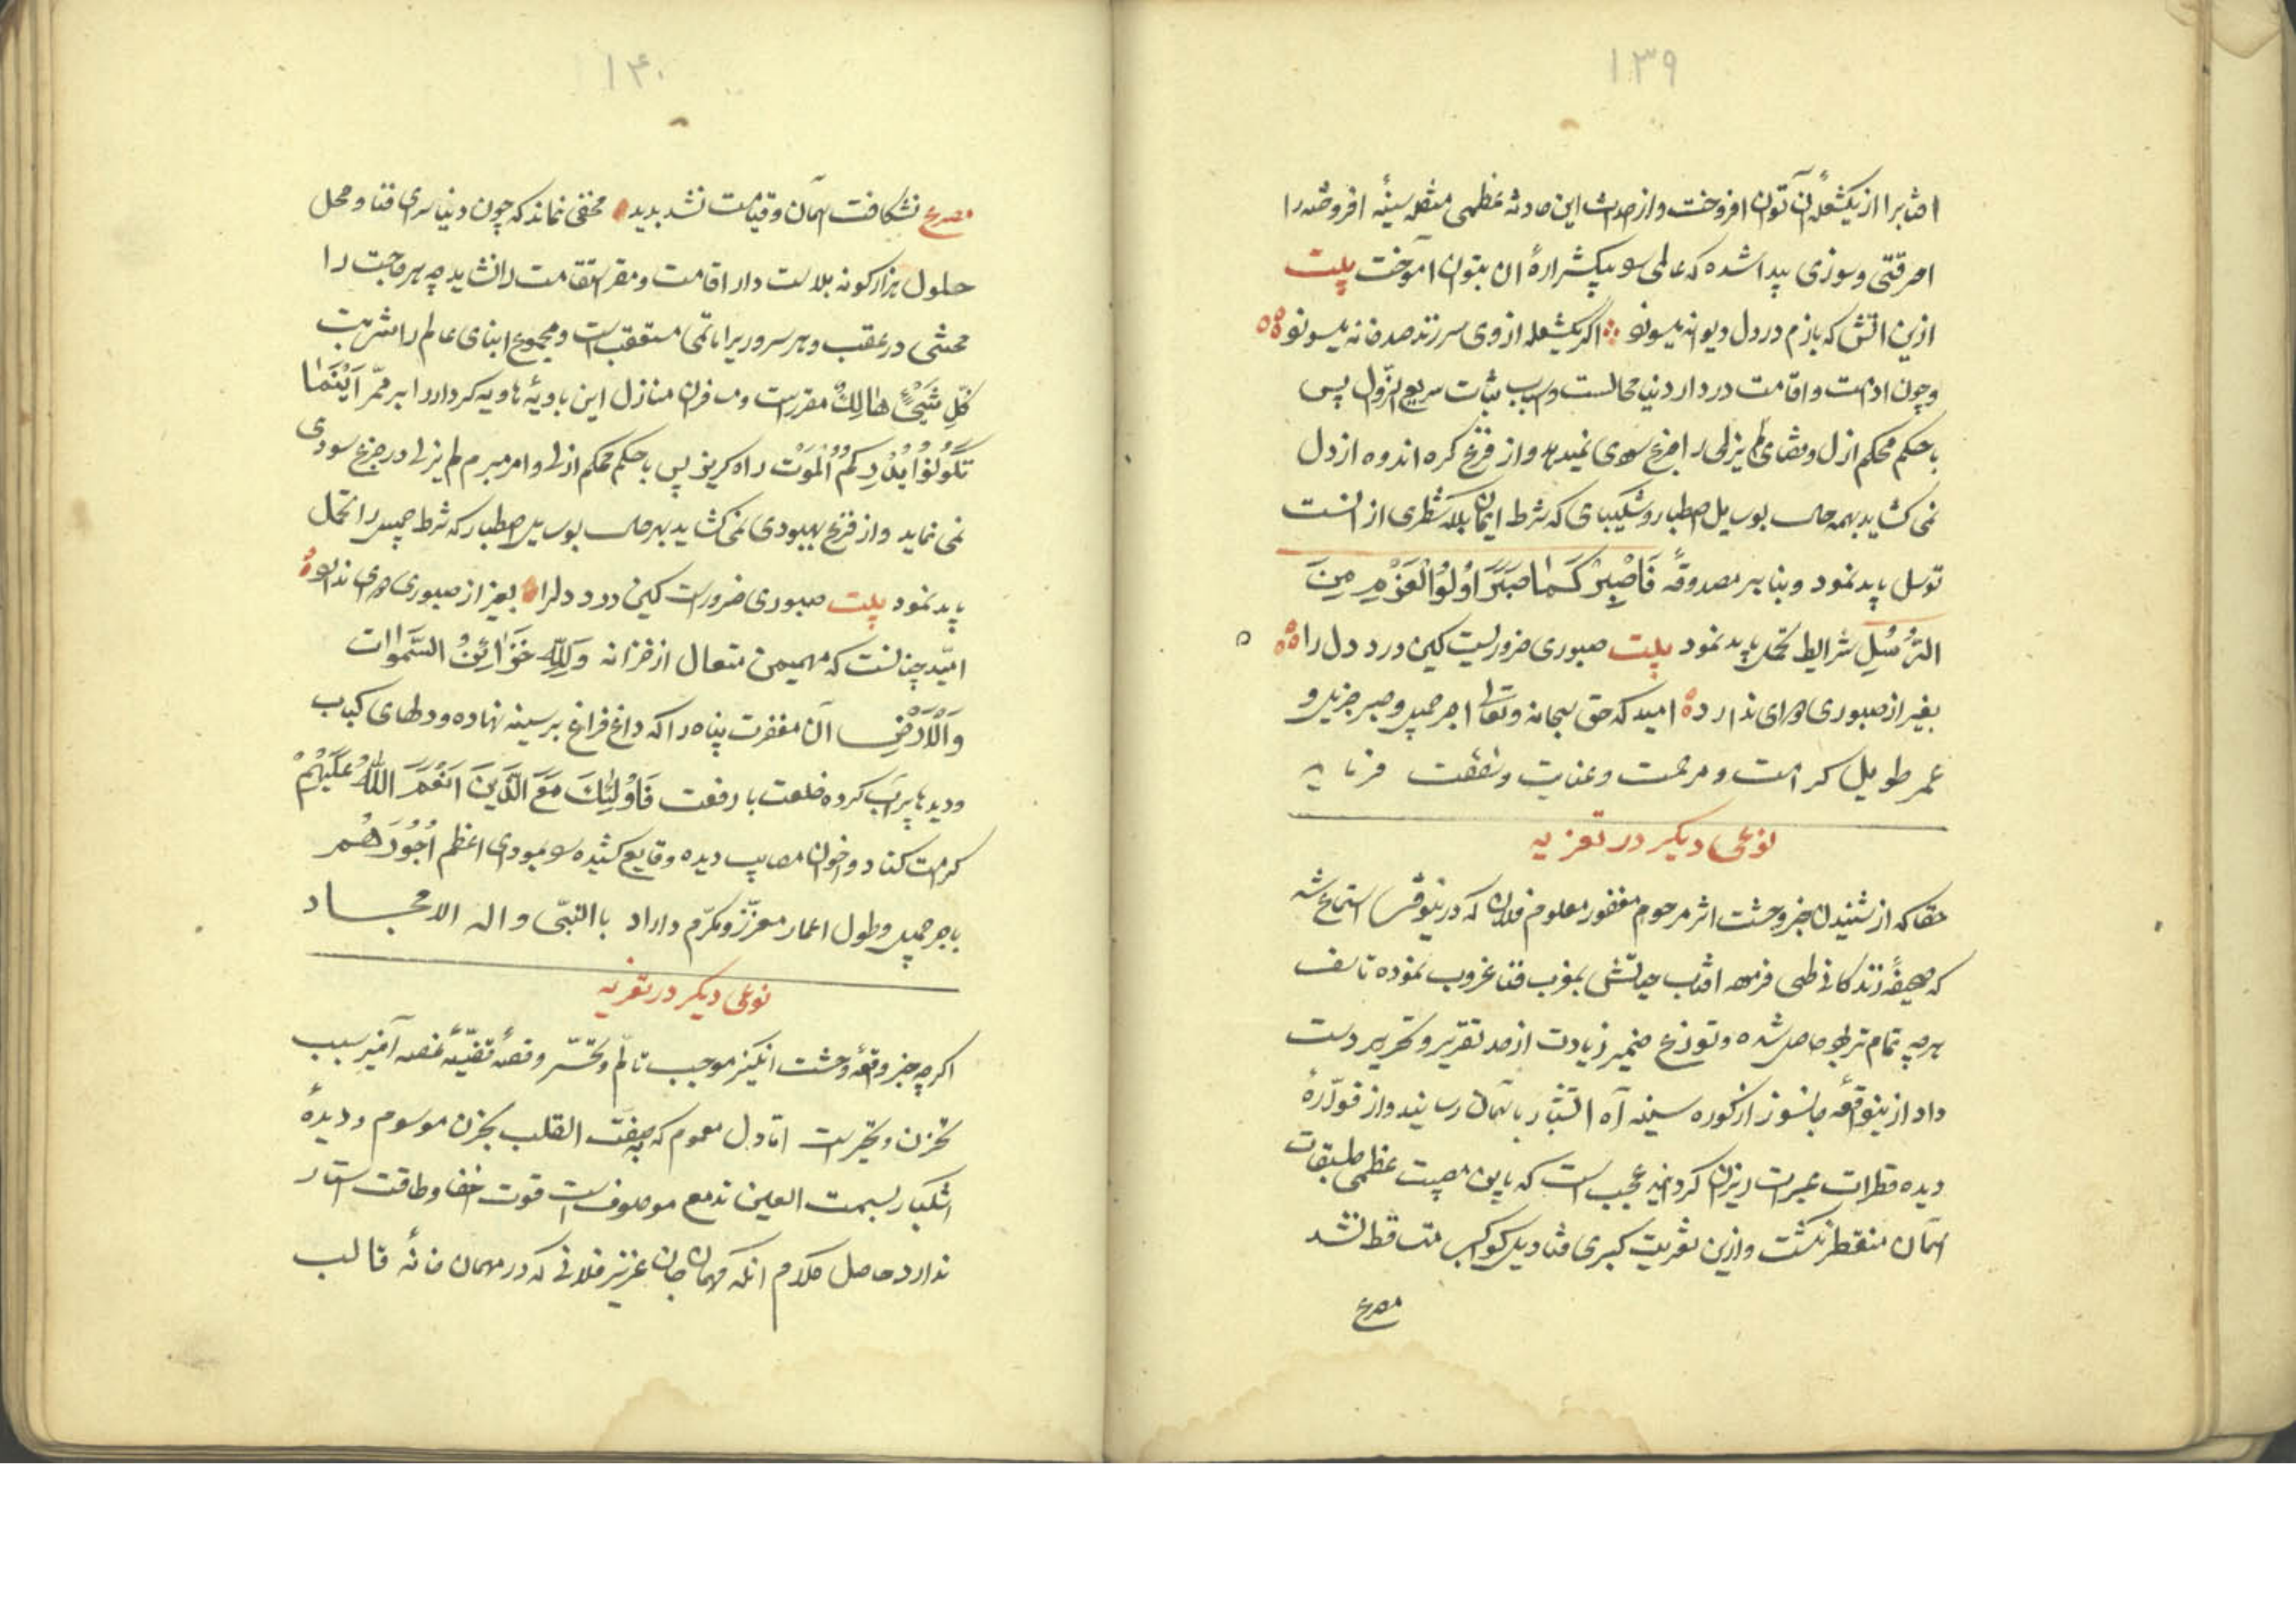 ۱۳۹
احشا برا از یکشعلهٔ آن توان افروخت و از حدث این حادثه عظمی مشعله سینهٔ افروخته را
احرقتی و سوزی پیدا شده که عالمی سوز بیکشرارهٔ ان بتوان آموخت بیت
ازین اتش که بازم در دل دیوانه میسوزد اکر یکشعله از وی سر زند صد خانه میسوزد
و چون ادامت و اقامت در دار دنیا محالست و اسباب ثبات سریع الزوال پس
با حکم محکم ازل و قضای لم یزلی را جزع سودی نمیدهد و از فزع کره اندوه از دل
نمی کشاید بهمه حال بوسیل اصطبار و شکیبای که شرط ایمان بلکه شطری از انست
توسل باید نمود و بنابر مصدوقهٔ فَاصْبِرْ كَمَا صَبَرَ اُولُوا الْعَزْمِ مِنَ
الرُّسُلِ شرایط تحمل باید نمود بیت صبوری ضروریست کین درد دل را
بغیر از صبوری دوای ندارد امید که حق سبحانه و تعالی اجر جمیل و صبر جزیل و
عمر طویل کرامت و مرحمت و عنایت و شفقت فرماید
نوعی دیکر در تعزیه
حقا که از شنیدن خبر وحشت اثر مرحوم مغفور معلوم فلان که درینوقت استماع شد
که صحیفهٔ زندکانی طی فرموده افتاب حیاتش بمغرب فنا غروب نموده تاسف
هر چه تمام تر بظهور حاصل شده و توزع ضمیر زیادت از حد تقریر و تحریر دست
داد ازینواقعه جانسوز از کوره سینه آه اتشبار بآسمان رسانید و از فوّارهٔ
دیده قطرات عبرات ریزان کردانید عجیب است که باین مصیبت عظمی طبقات
اسمان منفطر نکشت و ازین تعزیت کبری قنادیل کواکب متساقط نشد
مصرع
۱۴۰
مصرع نشکافت اسمان و قیامت نشد بدید مخفی نماند که چون دنیا سرای فنا و محل
حلول هزار کونه بلاست دار اقامت و مقر استقامت را نشاید چه هر فرحت را
محنتی در عقب و هر سروریرا ماتمی متعقب است و مجموع ابنای عالم را شربت
كُلِّ شَيْءٍ هٰالِكٌ مقررست و مسافران منازل این بادیهٔ هاویه کردار را بر ممرّ اَيْنَمٰا
تَكُونُوا يُدْرِكْكُمُ الْمَوْتُ راه کریز پس با حکم محکم ازلی و امر مبرم لم یزلی در جزع سودی
نمی نماید و از فزع بهبودی نمی کشاید بهر حال بوسیل اصطبار که شرط جمیل را تحمل
باید نمود بیت صبوری ضرورست کین درد دلرا بغیر از صبوری دوای ندارد
امید چنانست که مهیمن متعال از خزانه وَلِلّٰهِ خَزٰائِنُ السَّمٰوٰات
وَالْاَرْضِ آن مغفرت پناه را که داغ فراغ بر سینه نهاده و دلهای کباب
و دیدها پرآب کرده خلعت با رفعت فَاُولٰئِكَ مَعَ الَّذِينَ اَنْعَمَ اللّٰهُ عَلَيْهِمْ
کرامت کناد و اخوان مصایب دیده وقایع کشیده را بمودای اعظم اُجُورَهُمْ
باجر جمیل و طول اعمار معزّز و مکرّم داراد باالنبیّ و اله الامجاد
نوعی دیکر در تعزیه
اکر چه خبر واقعهٔ وحشت انکیز موجب تالّم و تحسّر و قصهٔ قضیّهٔ غصه آمیز سبب
تحزن و تحیرست امّا دل مغموم که بصفت القلب یحزن موسوم و دیدهٔ
اشکبار بسمت العین تدمع موصوفست قوت اخفا و طاقت استتار
ندارد حاصل کلام انکه مهمان جان عزیز فلانی که در مهمان خانهٔ قالب